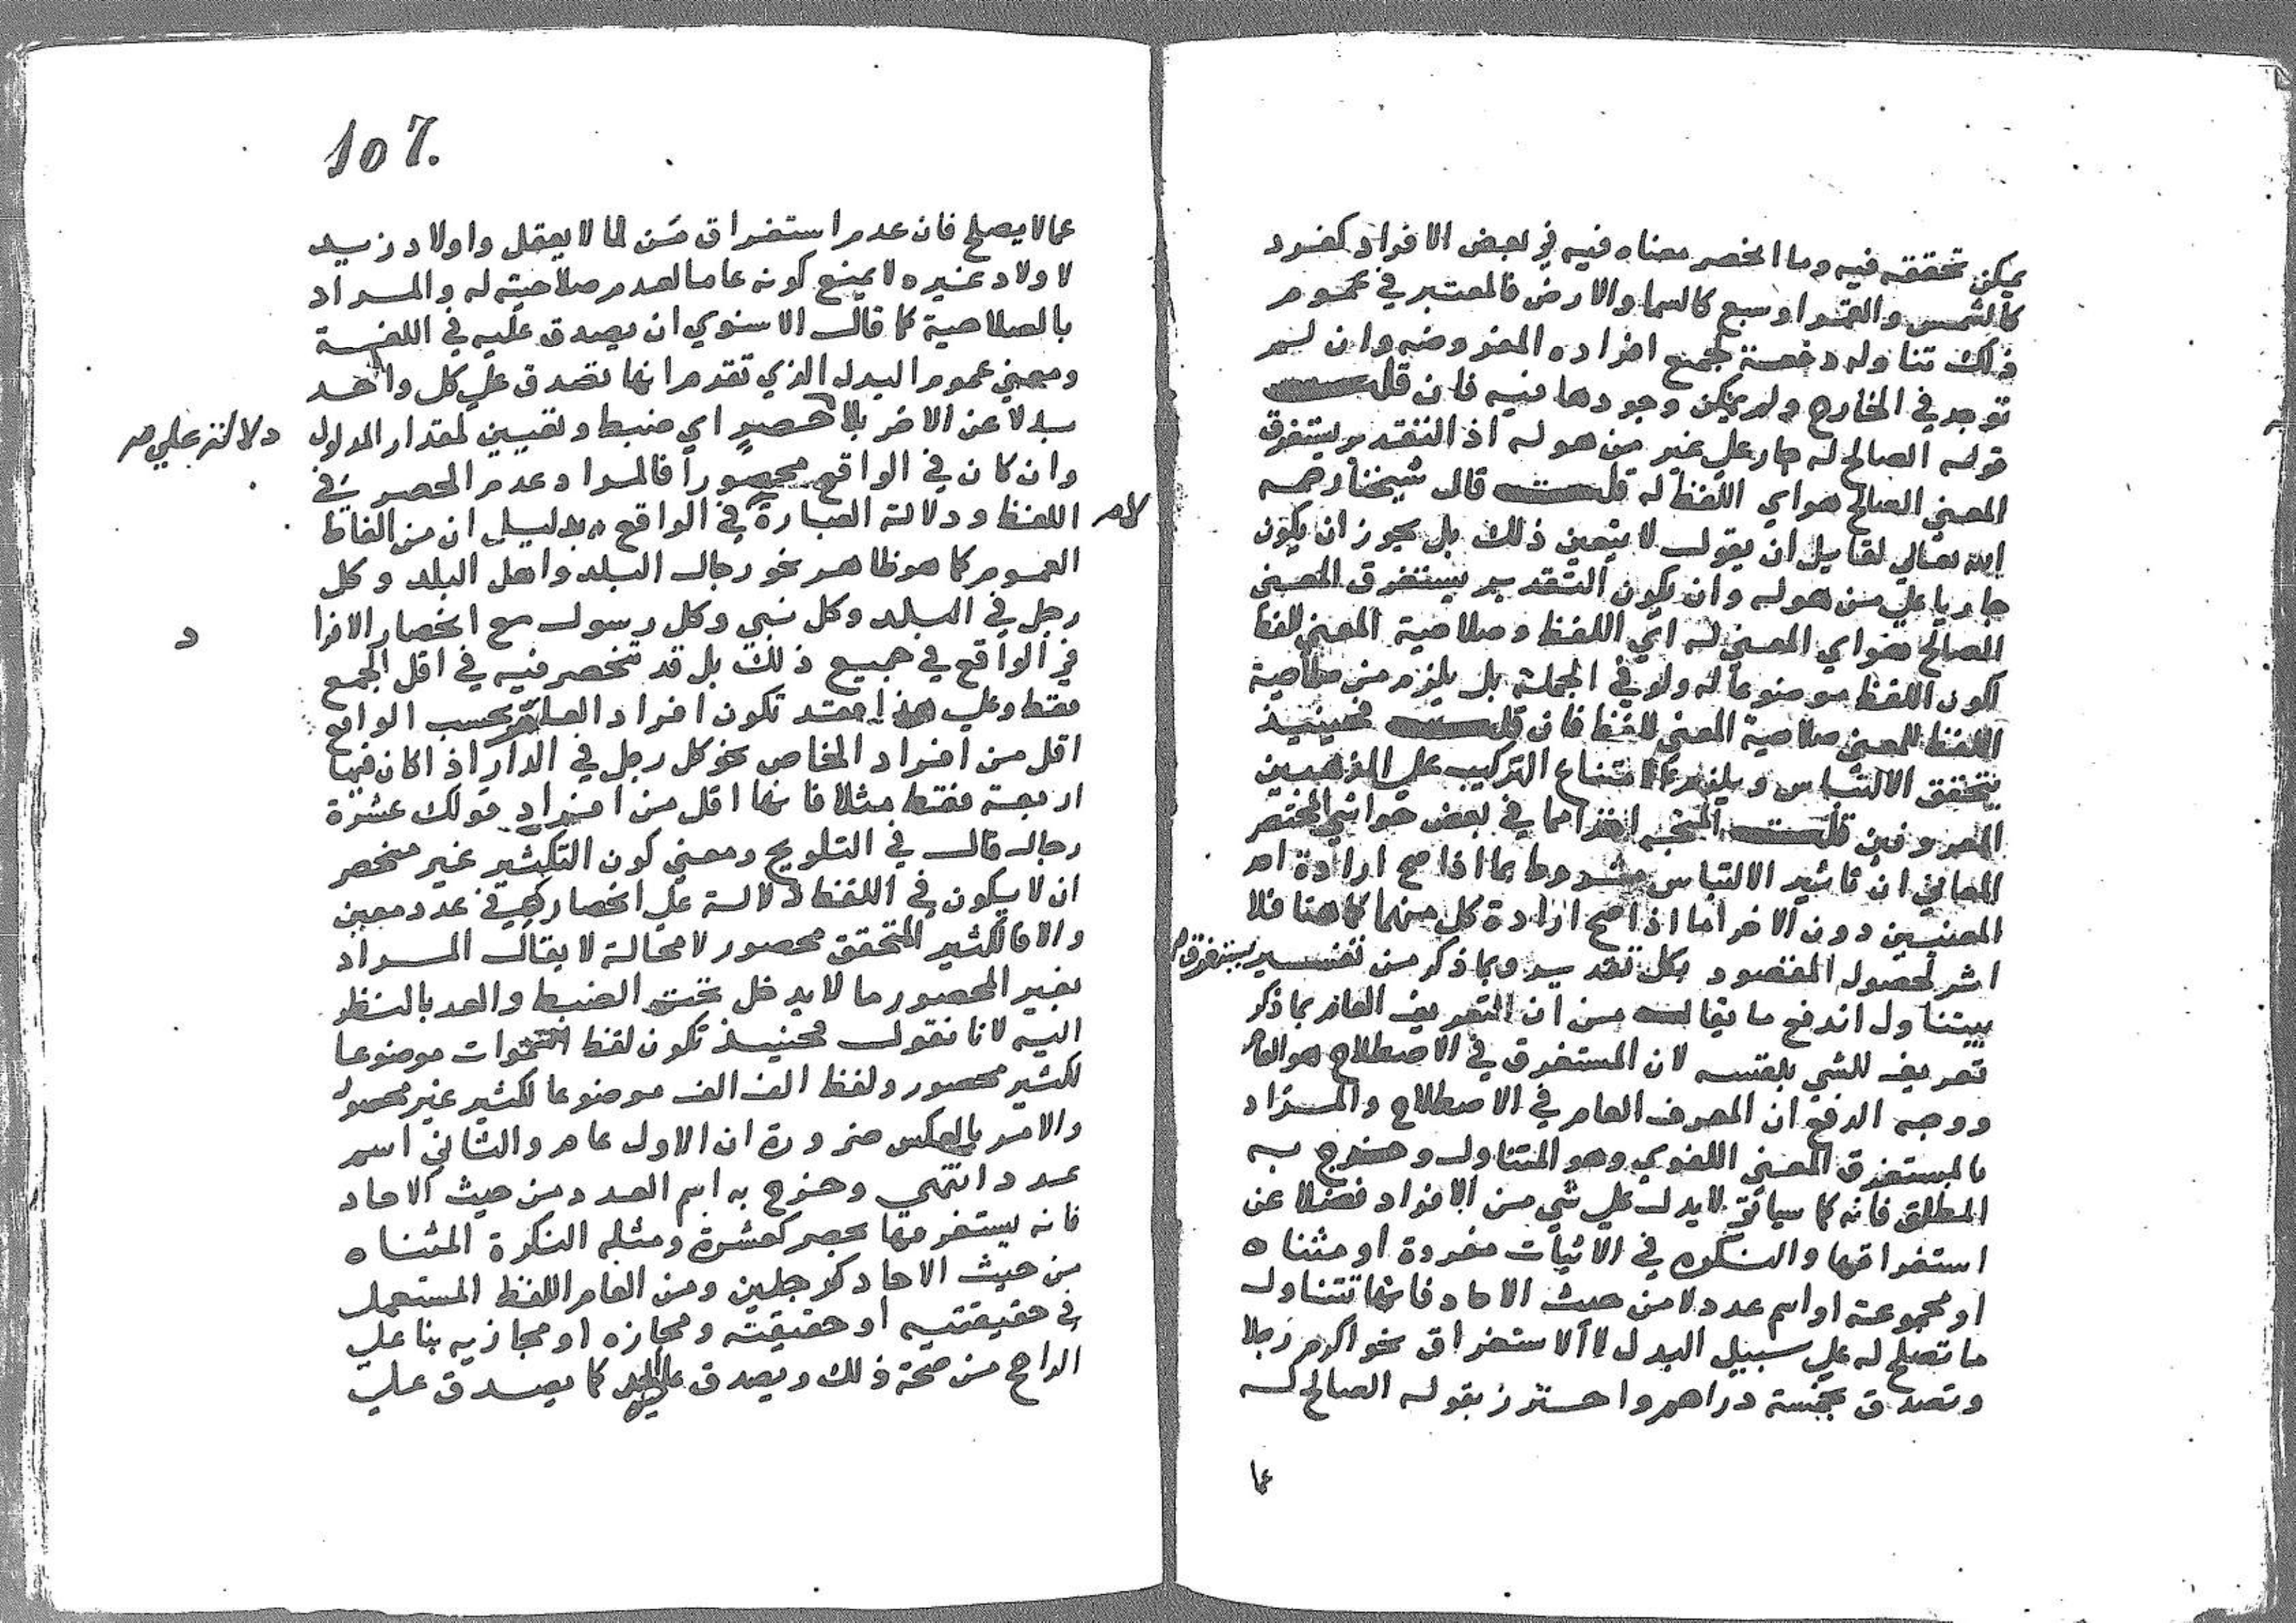 يمكن تحققه فيه وما انحصر معناه فيه في بعض الافراد كفرد
كالشمس والقمر او سبع كالسما والارض فالمعتبر في عموم
ذلك تناوله دفعة لجميع افراده المفروضه وان لم
توجد في الخارج ولم يمكن وجودها فيه فان قلت
قوله الصالح له جار علي غير من هو له اذ التقدير يستغرق
المعني الصالح هو اي اللفظ له قلت قال شيخنا رحمه
الله تعالي لقايل ان يقول لا يتعين ذلك بل يجوز ان يكون
جاريا علي من هو له وان يكون التقدير يستغرق المعني
الصالح هو اي المعني له اي اللفظ وصلاحية المعني للفظ
كون اللفظ موضوعا له ولو في الجملة بل يلزم من صلاحية
اللفظ للمعني صلاحية المعني للفظ فان قلت فحينيذ
يتحقق الالتباس ويلزم امتناع التركيب علي المذهبين
المعروفين قلت في بعض حواشي المختصر
المعاني ان تاثير الالتباس مشروط بما اذا صح ارادة احد
المعنيين دون الاخر اما اذا صح ارادة كل منهما كما هنا فلا
اثر لحصول المقصود بكل تقدير وبما ذكر من تفسير يستغرق
بيتناول اندفع ما يقال من ان التعريف العام بما ذكر
تعريف للشي بنفسه لان المستغرق في الاصطلاح هو العام
ووجه الدفع ان المعرف العام في الاصطلاح والمراد
بالمستغرق المعني اللغوي وهو المتناول وخرج به
المطلق فانه كما سياتي لا يدل علي شي من الافراد فضلا عن
استغراقها والنكره في الاثبات مفردة او مثناه
او مجموعة او اسم عدد لا من حيث الاحاد فانها تتناول
ما تصلح له علي سبيل البدل لا الاستغراق نحو اكرم رجلا
وتصدق بخمسة دراهم واحترز بقوله الصالح له
عما
107.
عما لا يصلح فان عدم استغراق مَن لما لا يعقل واولاد زيد
لاولاد غيره لا يمنع كونه عاما لعدم صلاحيته له والمراد
بالصلاحية كما قال الاسنوي ان يصدق عليه في اللغة
ومعني عموم البدل الذي تقدم انها تصدق علي كل واحد
بدلا عن الاخر بلا حصر اي ضبط وتعيين لمقدار المدلول
دلالته علي
وان كان في الواقع محصورا فالمراد عدم الحصر في
اللفظ ودلالة العبارة لا في الواقع بدليل ان من الفاظ
العموم كما هو ظاهر نحو رجال البلد واهل البلد وكل
رجل في البلد وكل نبي وكل رسول مع انحصار الافرا
د
في الواقع في جميع ذلك بل قد تنحصر فيه في اقل الجمع
فقط وعلي هذا فقد تكون افراد العام بحسب الواقع
اقل من افراد الخاص نحو كل رجل في الدار اذا كان فيها
اربعة فقط مثلا فانها اقل من افراد قولك عشرة
رجال قال في التلويح ومعني كون الكثير غير منحصر
ان لا يكون في اللفظ دلالة علي انحصاره في عدد معين
والا فالكثير المتحقق محصور لا محالة لا يقال المراد
بغير المحصور ما لا يدخل تحت الضبط والعد بالنظر
اليه لانا نقول فحينيذ تكون لفظ السموات موضوعا
لكثير محصور ولفظ الف الف موضوعا لكثير غير محصور
والامر بالعكس ضرورة ان الاول عام والثاني اسم
عدد انتهي وخرج به اسم العدد من حيث الاحاد
فانه يستغرقها بحصر كعشرة ومثله النكرة المثناه
من حيث الاحاد كرجلين ومن العام اللفظ المستعمل
في حقيقتيه او حقيقته ومجازه او مجازيه بنا علي
الراجح من صحة ذلك ويصدق عليه الحد كما يصدق علي